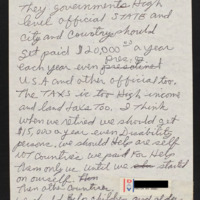 They governments High
level official STATE and
City and Country should
get paid $20,000 a year
Each year even Pres. of
U.S.A and other official too.
The TAXS is Too High income
and land taxs Too. I Think
when we retired we should get
$15,000 a year even Disability
persons. we should Help are self
Countries we paid For Help
Them only we until we start
on ourself.
Then other Countries